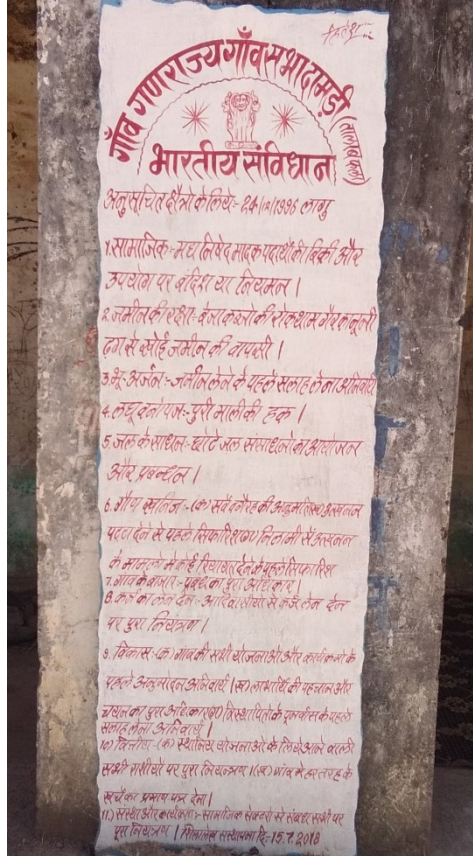 हितेश...
गाँव गणराज्य गाँव सभा दामड़ी
(तालाब फला)
भारतीय संविधान
अनुसूचित क्षैत्रो के लिये:- 24/12/1996 लागु
1. सामाजिक:- मध निषेद मादक पदार्थो की बिक्री और
उपयोग पर बंदिश या नियमन ।
2. जमीन की रक्षा:- बेजा कब्जो की रोकथाम गैर कानूनी
ढग से खोई जमीन की वापसी ।
3. भू-अर्जन:- जमीन लेने के पहले सलाह लेना अनिवार्य
4. लघू वनोपज:- पुरी मालीकी हक ।
5. जल के साधन:- छोटे जल संसाधनो का आयोजन
और प्रबन्धन ।
6. गौण खनिज:- (क) सर्वे वगैरह की अनुमति (ख) उत्खनन
पटटा देने से पहले सिफारिश (ग) निलामी में उत्खनन
के मामलो मे कोई रियायत देने के पहले सिफारिश
7. गांव के बाजार:- प्रबंध का पुरा अधिकार ।
8. कर्ज का लेन देन:- आदिवासीयो से कर्ज लेन देन
पर पुरा नियंत्रण ।
9. विकास:- (क) गांव की सभी योजनाओ और कार्यक्रमो के
पहले अनुमोदन अनिवार्य (ख) लाभार्थि की पहचान और
चयन का पुरा अधिकार (ग) विस्थापितो के पुनर्वास के पहले
सलाह लेना अनिवार्य ।
10) वित्तीय:- (क) स्थानिय योजनाओ के लिये आने वाली
सभी राशीयो पर पुरा नियन्त्रण । (ख) गांव मे हर तरह के
खर्चे का प्रमाण पत्र देना ।
11.) संस्था और कार्यकर्ता:- सामाजिक सेक्टरो से संबध सभी पर
पुरा नियंत्रण । शिलालेख संस्थापना दि:- 15.7.2018